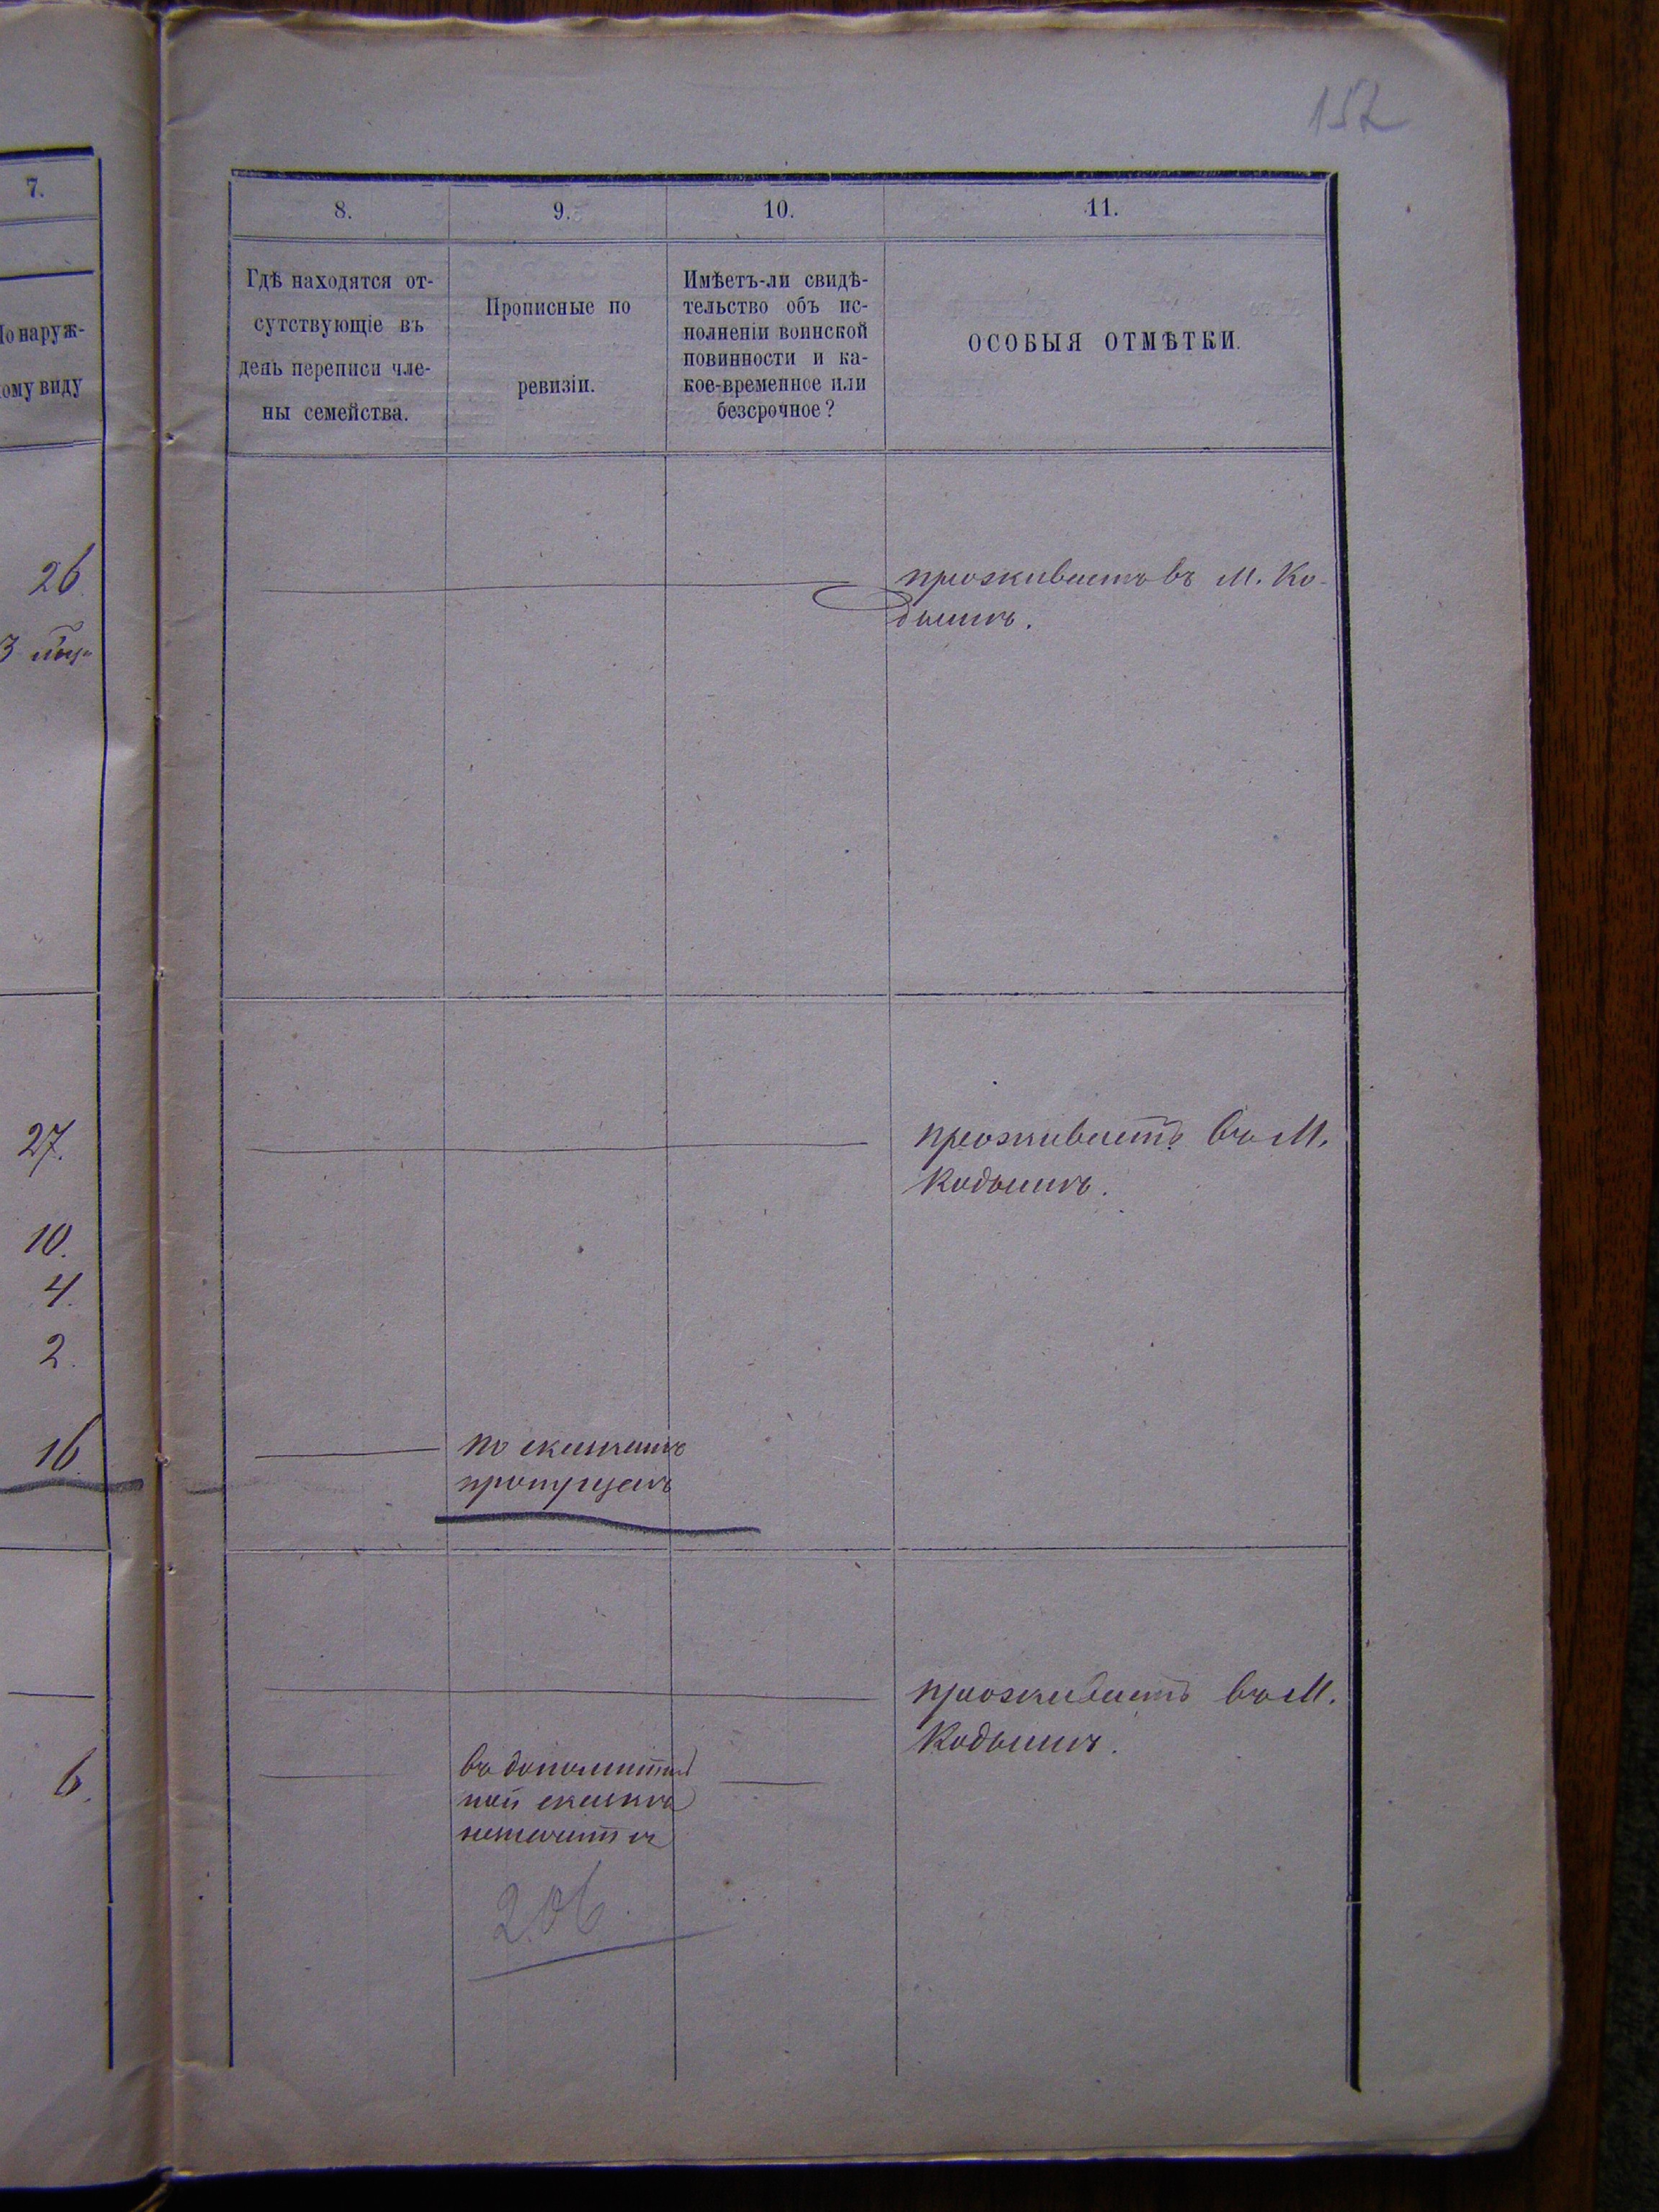 157
7.
По наруж-
ному виду
26
3
27.
10.
4.
2.
16
6.
8.
9.
10.
11.
Гдѣ находятся от-
сутствующіе въ
день переписи чле-
ны семейства.
Прописные по
ревизіи.
Имѣетъ-ли свидѣ-
тельство объ ис-
полненіи воинской
повинности и ка-
кое-временное или
безсрочное?
ОСОБЫЯ ОТМѢТКИ.
проживаетъ въ М. Ко-
дымѣ.
проживаетъ въ М.
Кодымѣ.
по сказкамъ
пропущенъ
проживаетъ въ М.
Кодымѣ.
въ дополнитель
ной сказкѣ
нечислится
206